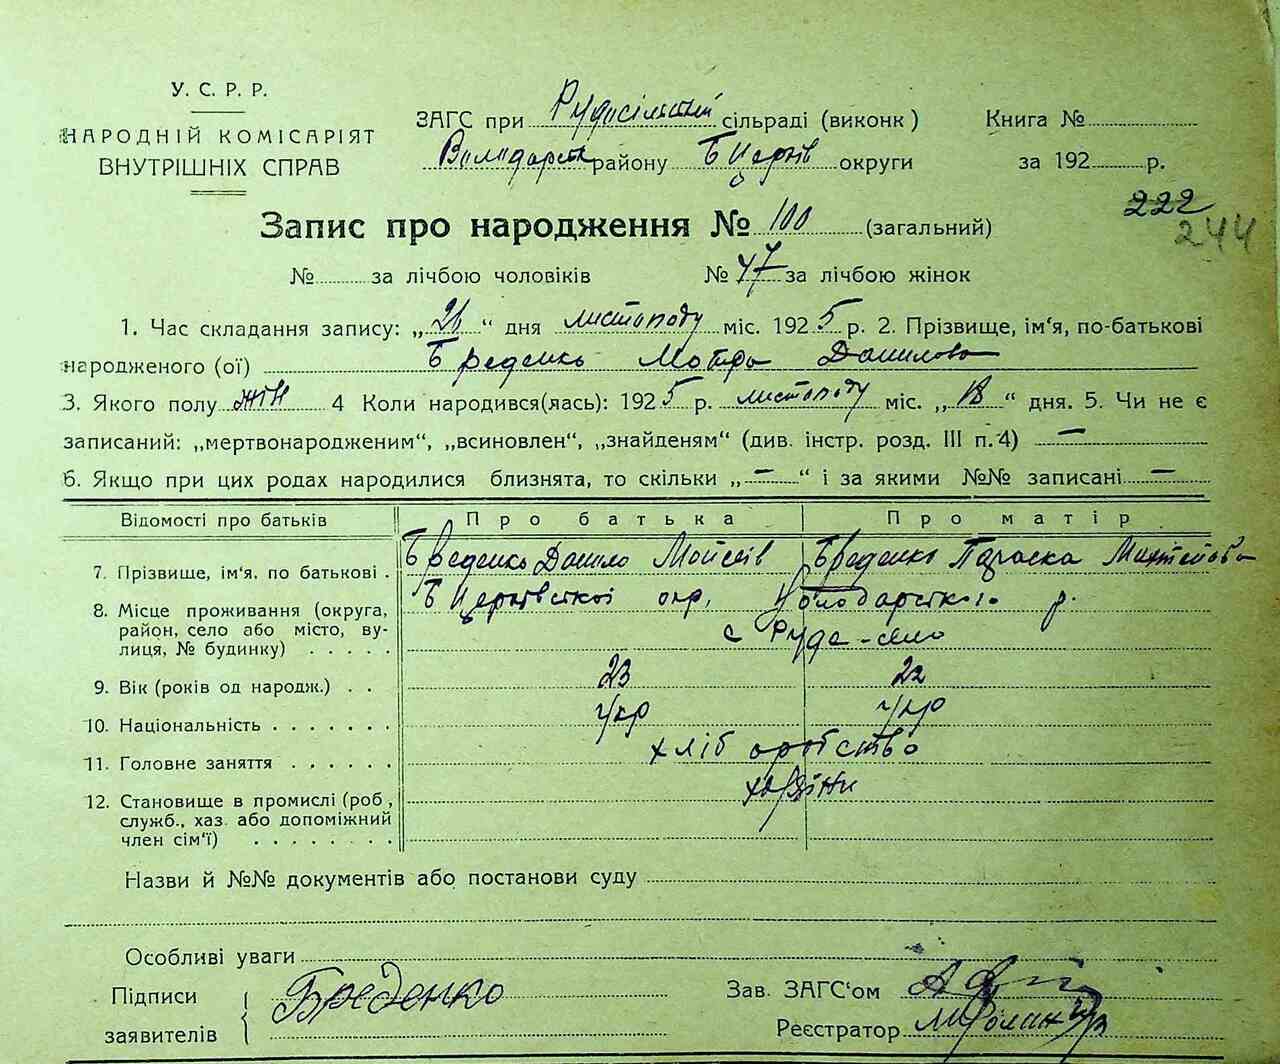 У. С. Р. Р.
НАРОДНІЙ КОМІСАРІЯТ
ВНУТРІШНІХ СПРАВ
ЗАГС при Рудосільській сільраді (виконк)
Володарськ району Б Церків округи
Книга №
за 192 р.
222
244
Запис про народження № 100 (загальний)
№ за лічбою чоловіків № 47 за лічбою жінок
1. Час складання запису: „26“ дня листопаду міс. 1925 р. 2. Прізвище, ім‘я, по-батькові
народженого (ої) Бреденко Мотря Данилова
3. Якого полу жін 4 Коли народився(лась): 1925 р. листопаду міс. „18“ дня. 5. Чи не є
записаний: „мертвонародженим“, „всиновлен“, „знайденям“ (див. інстр. розд. III п. 4) —
6. Якщо при цих родах народилися близнята, то скільки „—“ і за якими №№ записані —
Відомості про батьків Про батька Про матір
7. Прізвище, ім‘я, по батькові . Бреденко Данило Мойсеів Бреденко Параска
8. Місце проживання (округа, район, село або місто, вулиця, № будинку) Б Церківської окр. Володарського р.
с Руде-село
9. Вік (років од народж.) . . 23 22
10. Національність . . . . . . . укр укр
11. Головне заняття . . . . . . хліборобство
12. Становище в промислі (роб, служб., хаз. або допоміжний член сім‘ї)
Назви й №№ документів або постанови суду
Особливі уваги
Підписи заявителів Бреденко
Зав. ЗАГС‘ом
Реєстратор